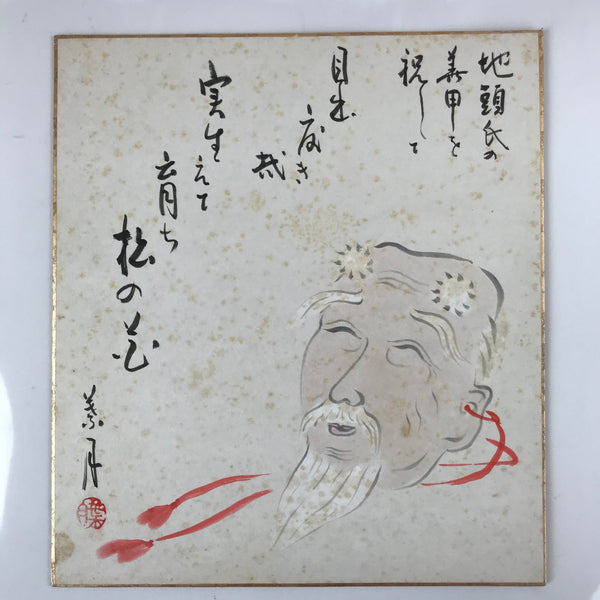 地頭氏の
義甲を
祝して
目出
度き
哉
実生えて
育ち
松の花
月